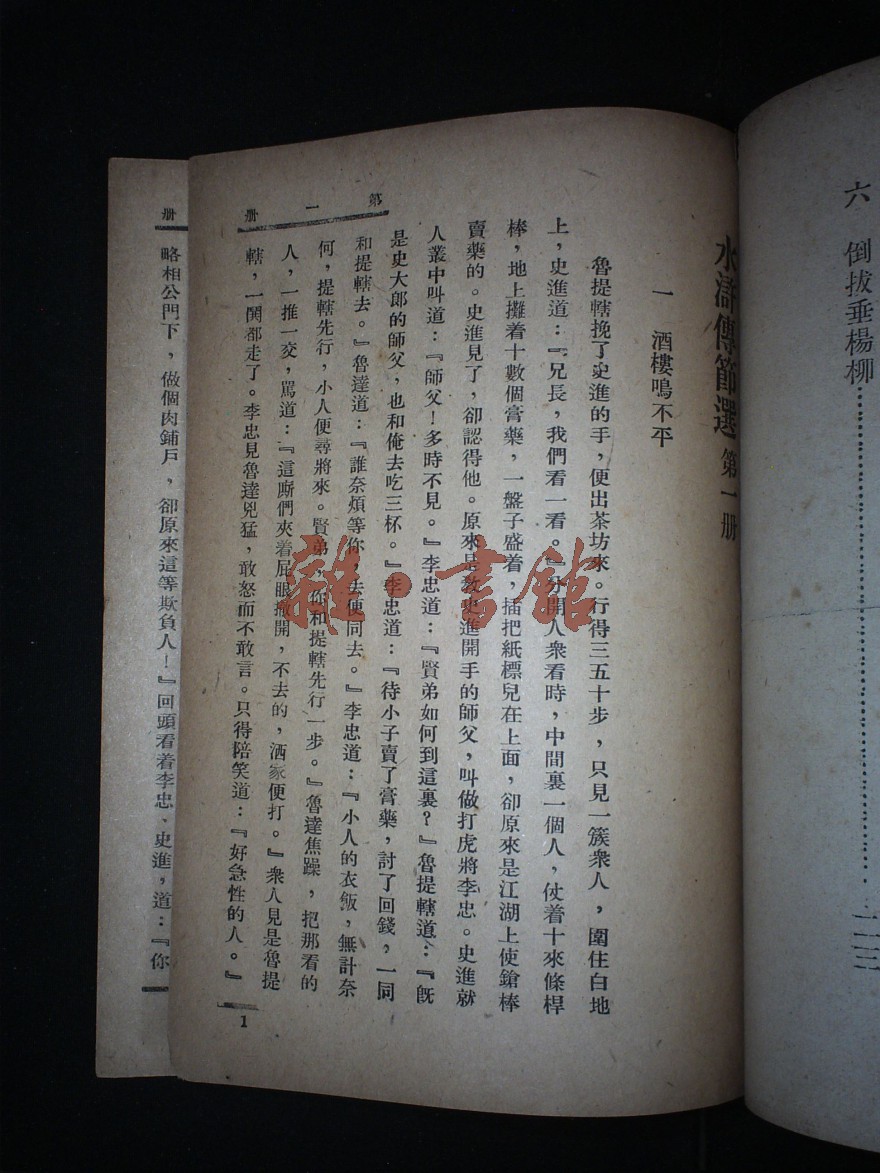 六　倒拔垂楊柳……………………一一三
水滸傳節選 第一册
一　酒樓鳴不平
魯提轄挽了史進的手，便出茶坊來。行得三五十步，只見一簇衆人，圍住白地
上，史進道：『兄長，我們看一看。』分開人衆看時，中間裏一個人，仗着十來條桿
棒，地上攤着十數個膏藥，一盤子盛着，插把紙標兒在上面，卻原來是江湖上使鎗棒
賣藥的。史進見了，卻認得他。原來是教史進開手的師父，叫做打虎將李忠。史進就
人叢中叫道：『師父！多時不見。』李忠道：『賢弟如何到這裏？』魯提轄道：『旣
是史大郎的師父，也和俺去吃三杯。』李忠道：『待小子賣了膏藥，討了回錢，一同
和提轄去。』魯達道：『誰奈煩等你，去便同去。』李忠道：『小人的衣飯，無計奈
何，提轄先行，小人便尋將來。賢弟，你和提轄先行一步。』魯達焦躁，把那看的
人，一推一交，罵道：『這廝們夾着屁眼撒開，不去的，洒家便打。』衆人見是魯提
轄，一閧都走了。李忠見魯達兇猛，敢怒而不敢言。只得陪笑道：『好急性的人。』
第一册
1
册
略相公門下，做個肉鋪戶，卻原來這等欺負人！』回頭看着李忠、史進，道：『你
雜·書館